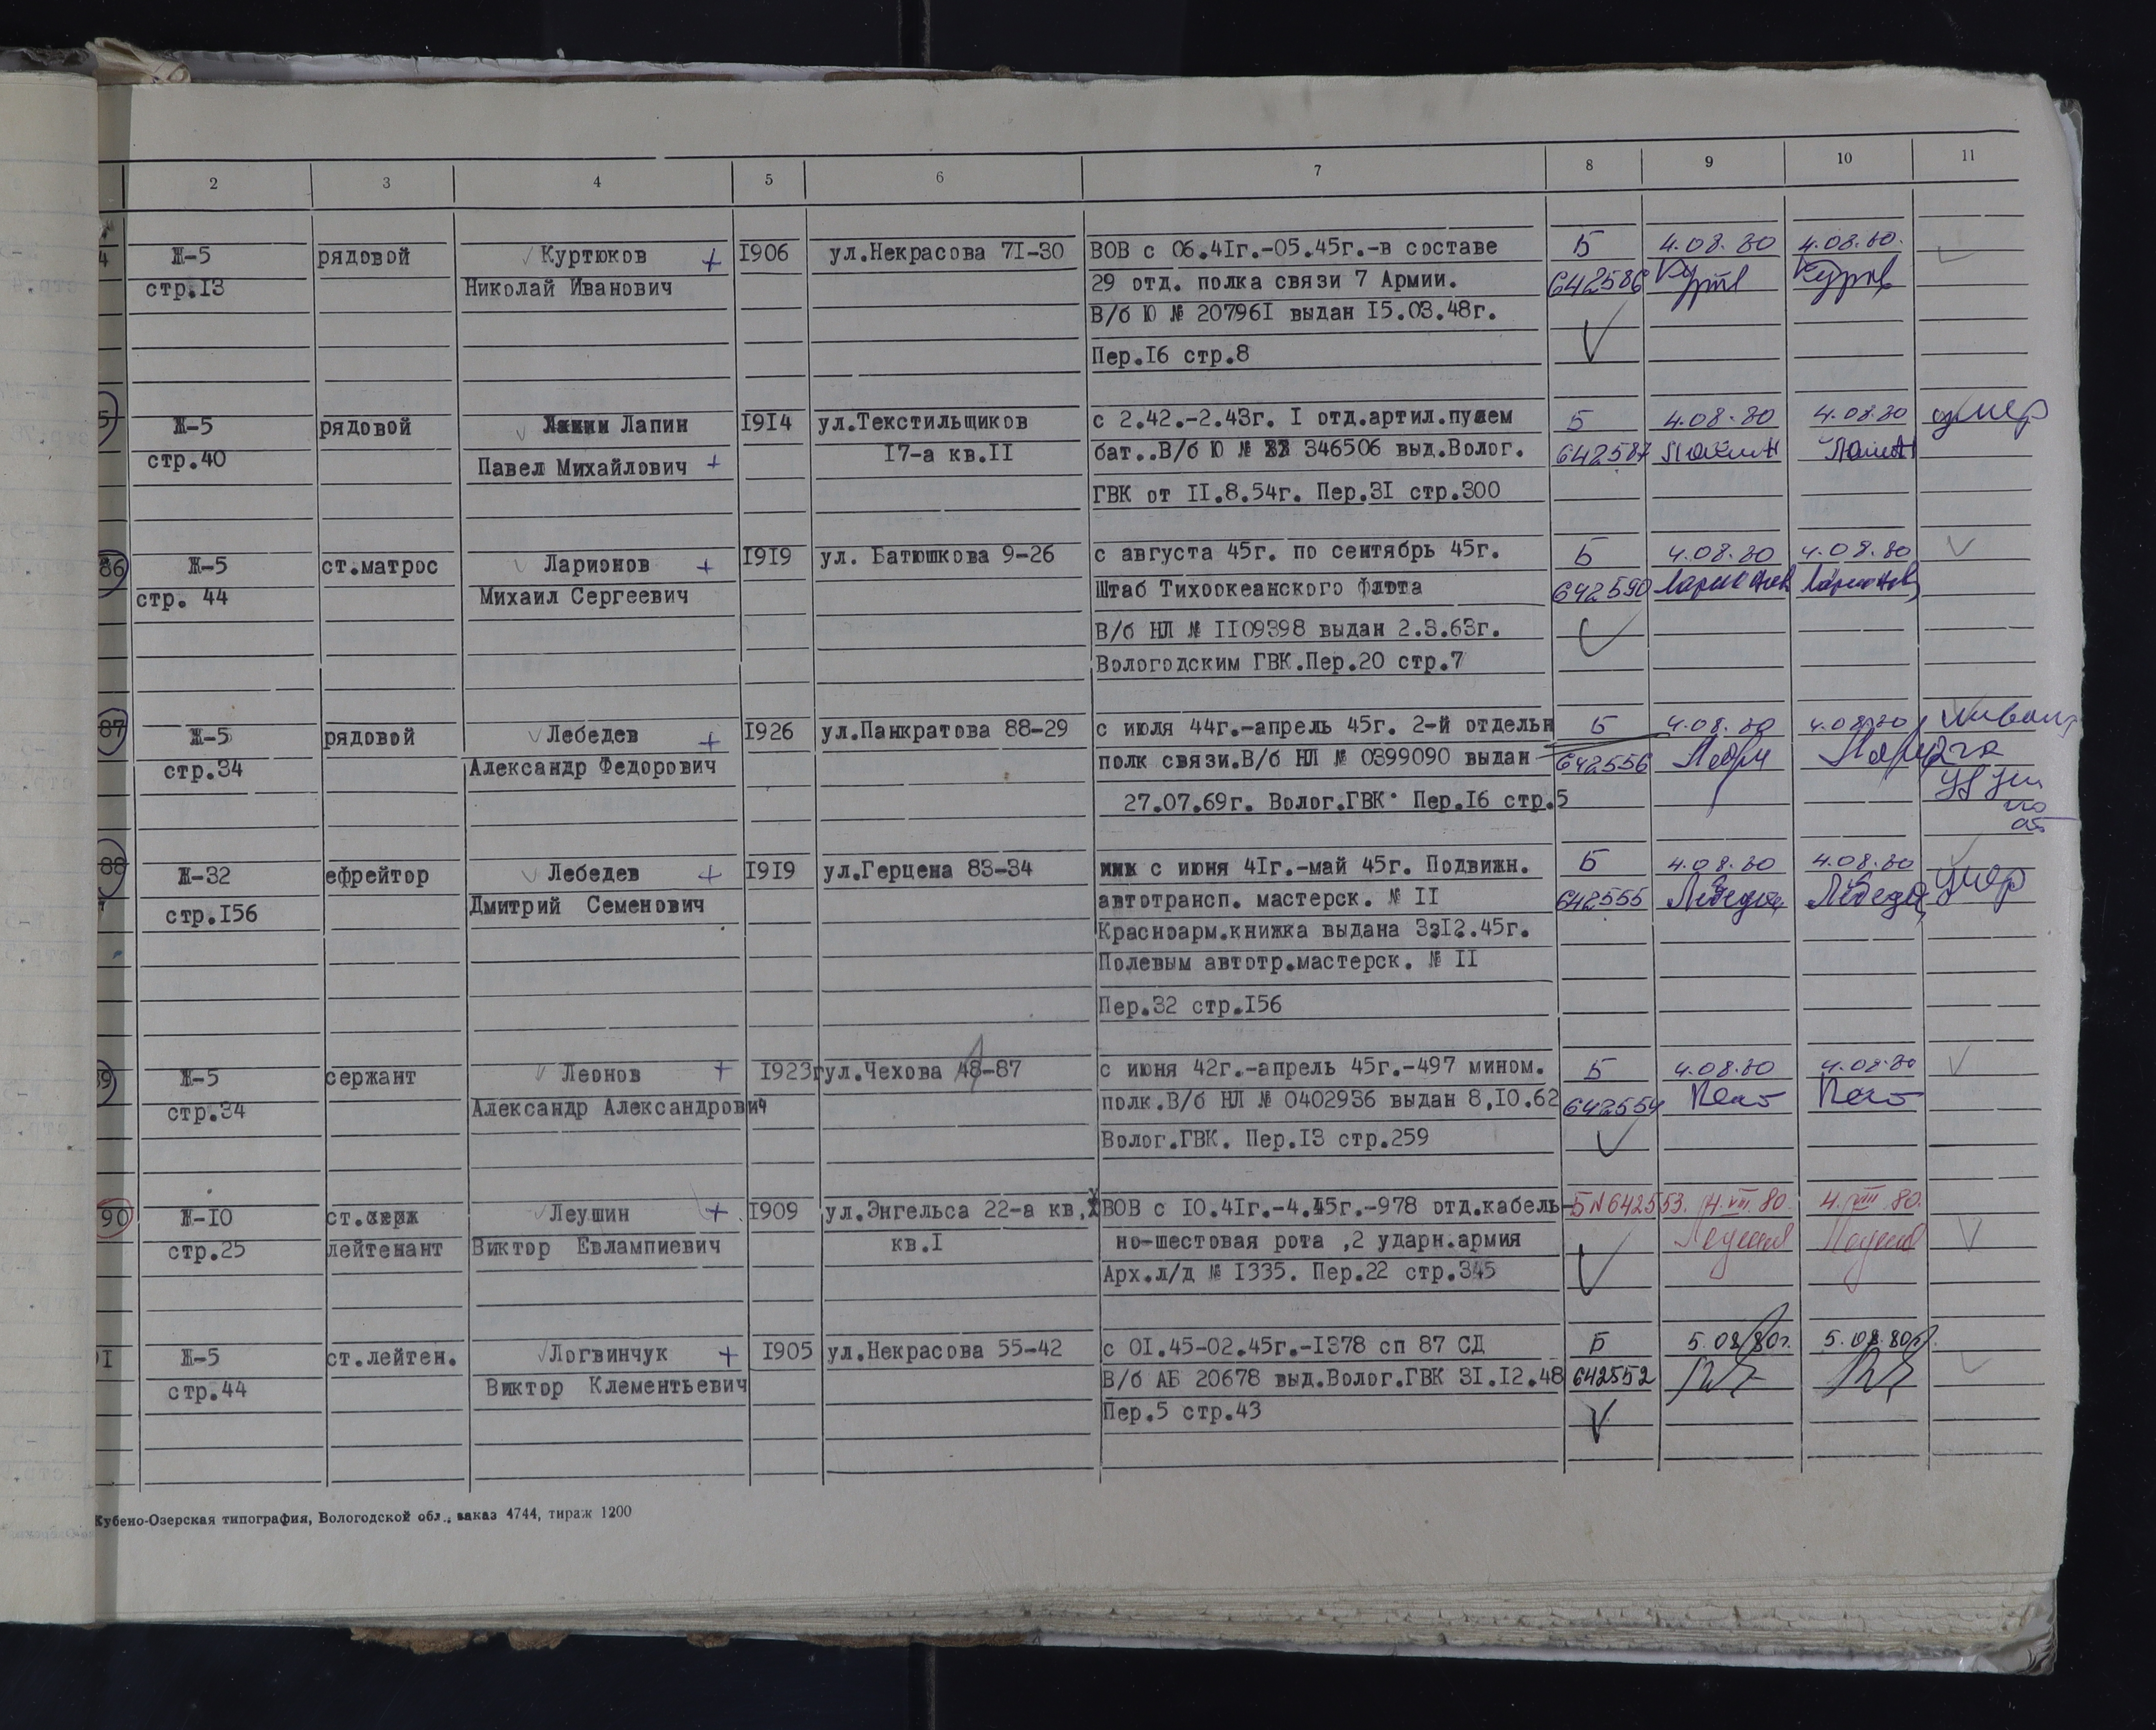 2 3 4 5 6 7 8 9 10 11
4 Ж-5 рядовой Куртюков + 1906 ул.Некрасова 7I-30 ВОВ с 06.4Iг.-05.45г.-в составе Б 4.08.80 4.08.80.
стр.I3 Николай Иванович 29 отд. полка связи 7 Армии. 642586
В/б Ю № 20796I выдан I5.03.48г.
Пер.I6 стр.8
5 Ж-5 рядовой Лапин I9I4 ул.Текстильщиков с 2.42.-2.43г. I отд.артил.пулем Б 4.08.80 4.08.80 умер
стр.40 Павел Михайлович + I7-а кв.II бат..В/б Ю № 346506 выд.Волог. 642587 Лапин Лапин
ГВК от II.8.54г. Пер.3I стр.300
86 Ж-5 ст.матрос Ларионов + I9I9 ул. Батюшкова 9-26 с августа 45г. по сентябрь 45г. Б 4.08.80 4.08.80
стр. 44 Михаил Сергеевич Штаб Тихоокеанского флота 642590 Ларионов Ларионов
В/б НЛ № II09398 выдан 2.3.63г.
Вологодским ГВК.Пер.20 стр.7
87 Ж-5 рядовой Лебедев + I926 ул.Панкратова 88-29 с июля 44г.-апрель 45г. 2-й отдельн Б 4.08.80 4.08.80
стр.34 Александр Федорович полк связи.В/б НЛ № 0399090 выдан 642556
27.07.69г. Волог.ГВК Пер.I6 стр.5
88 Ж-32 ефрейтор Лебедев + I9I9 ул.Герцена 83-34 с июня 4Iг.-май 45г. Подвижн. Б 4.08.80 4.08.80 умер
стр.I56 Дмитрий Семенович автотрансп. мастерск. № II 642555 Лебедев Лебедев
Красноарм.книжка выдана 3.I2.45г.
Полевым автотр.мастерск. № II
Пер.32 стр.I56
89 Ж-5 сержант Леонов + I923г ул.Чехова 48-87 с июня 42г.-апрель 45г.-497 мином. Б 4.08.80 4.08.80
стр.34 Александр Александрович полк.В/б НЛ № 0402936 выдан 8,I0.62 642554
Волог.ГВК. Пер.I3 стр.259
90 Ж-I0 ст. Леушин + I909 ул.Энгельса 22-а кв, ВОВ с I0.4Iг.-4.45г.-978 отд.кабель- Б N 642553. 4.VIII.80. 4.VIII.80.
стр.25 лейтенант Виктор Евлампиевич кв.I но-шестовая рота ,2 ударн.армия Леушин Леушин
Арх.л/д № I335. Пер.22 стр.345
I Ж-5 ст.лейтен. Логвинчук + I905 ул.Некрасова 55-42 с 0I.45-02.45г.-I378 сп 87 СД Б 5.08.80г. 5.08.80г.
стр.44 Виктор Клементьевич В/б АБ 20678 выд.Волог.ГВК 3I.I2.48 642552
Пер.5 стр.43
Кубено-Озерская типография, Вологодской обл., заказ 4744, тираж 1200